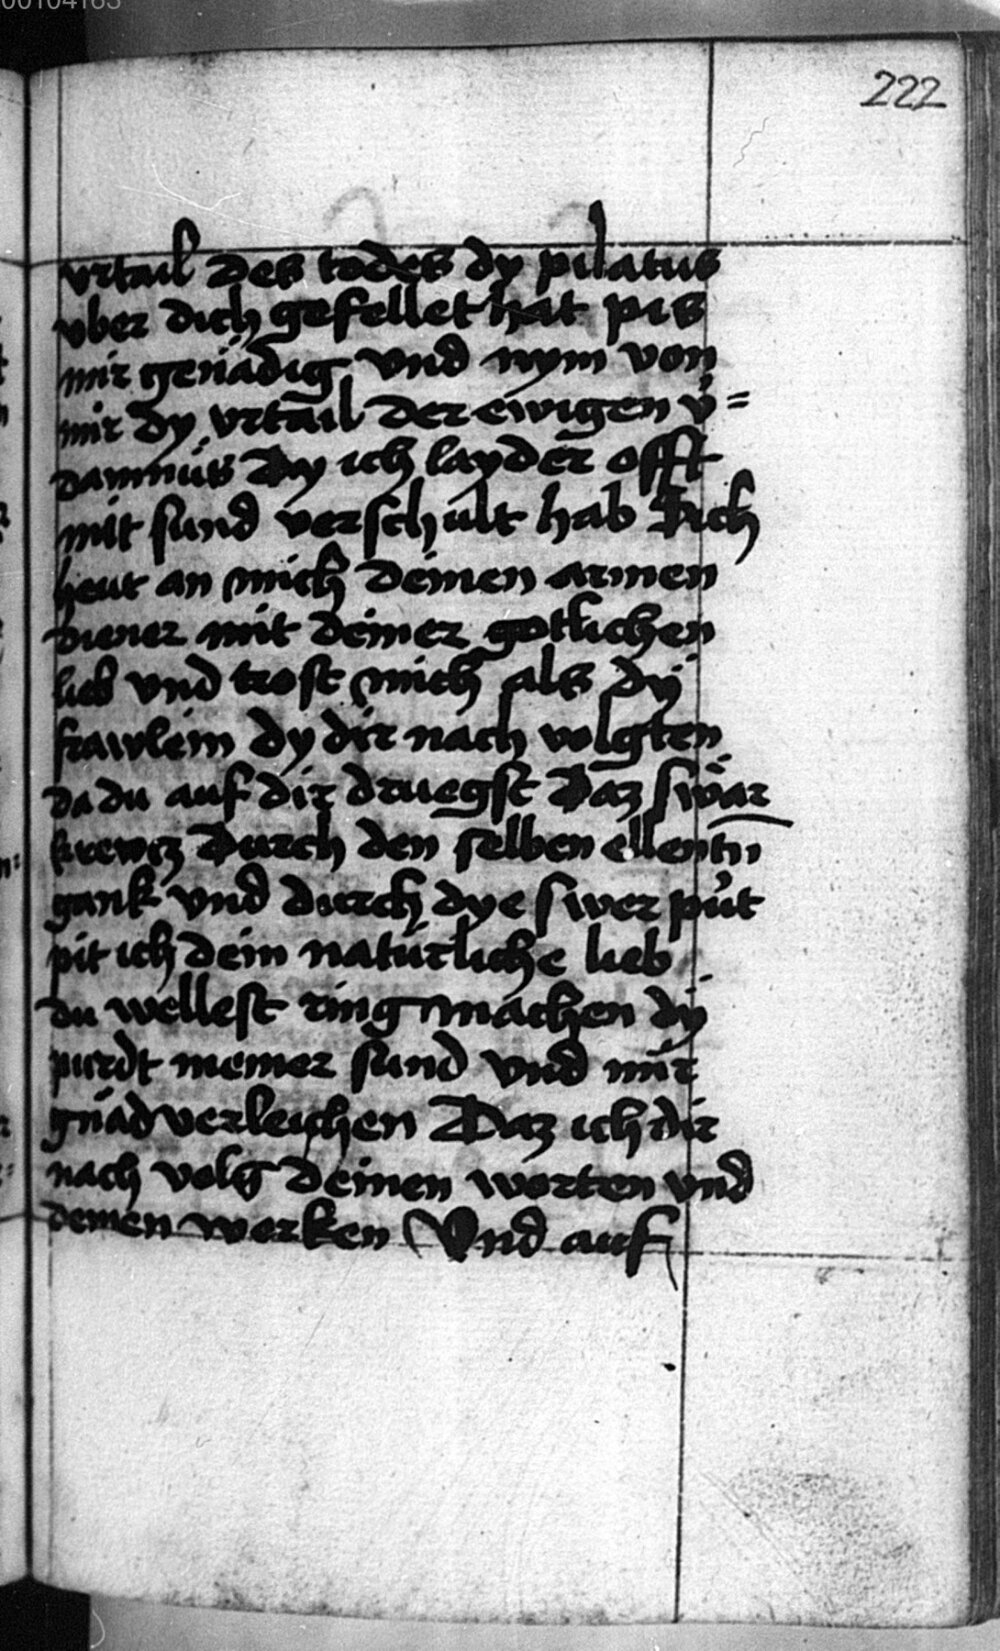 00104163
222
vrtail des todes dy pilatus
vber dich gefellet hat pis
mir genädig vnd nym von
mir dy vrtail der ewigen v̄=
damnüs Dy ich layder offt
mit sund verschult hab Sich
heut an mich deinen armen
diener mit deiner gotlichen
lieb vnd trost mich als dÿ
frawlein dy dir nach volgten
da du auf dir druegst Daz swär
krewcz Durch den selben ellentn
gank vnd durch dye swer pürt
pit ich dein natürliche lieb
du wellest ring machen dÿ
purdt meiner sünd vnd mir
gnäd verleichen Daz ich dir
nach volg deinen worten vnd
deinen werken Vnd auf